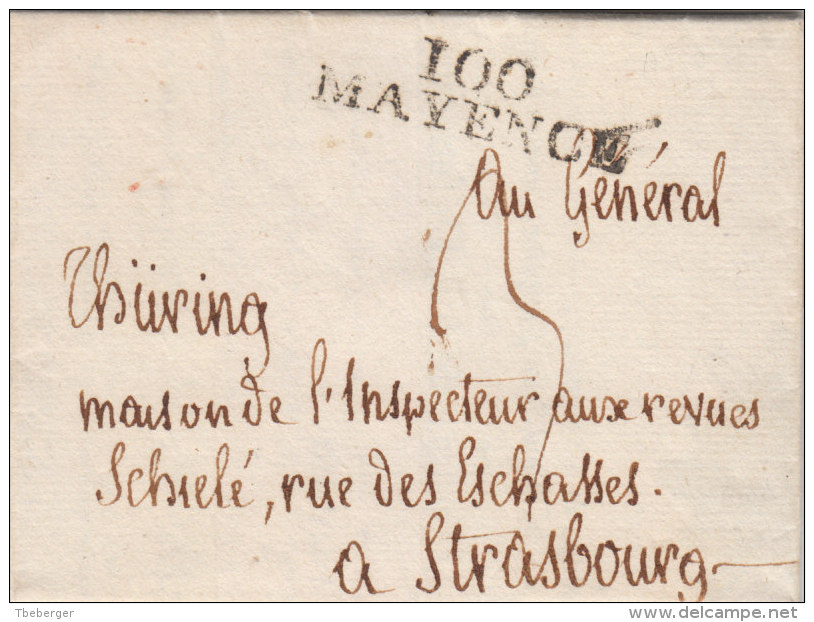 100
MAYENCE
Au Général
Thüring
maison de l'Inspecteur aux revues
Schielé, rue des Eschasses.
a Strasbourg
Tbeberger
delcampe.net